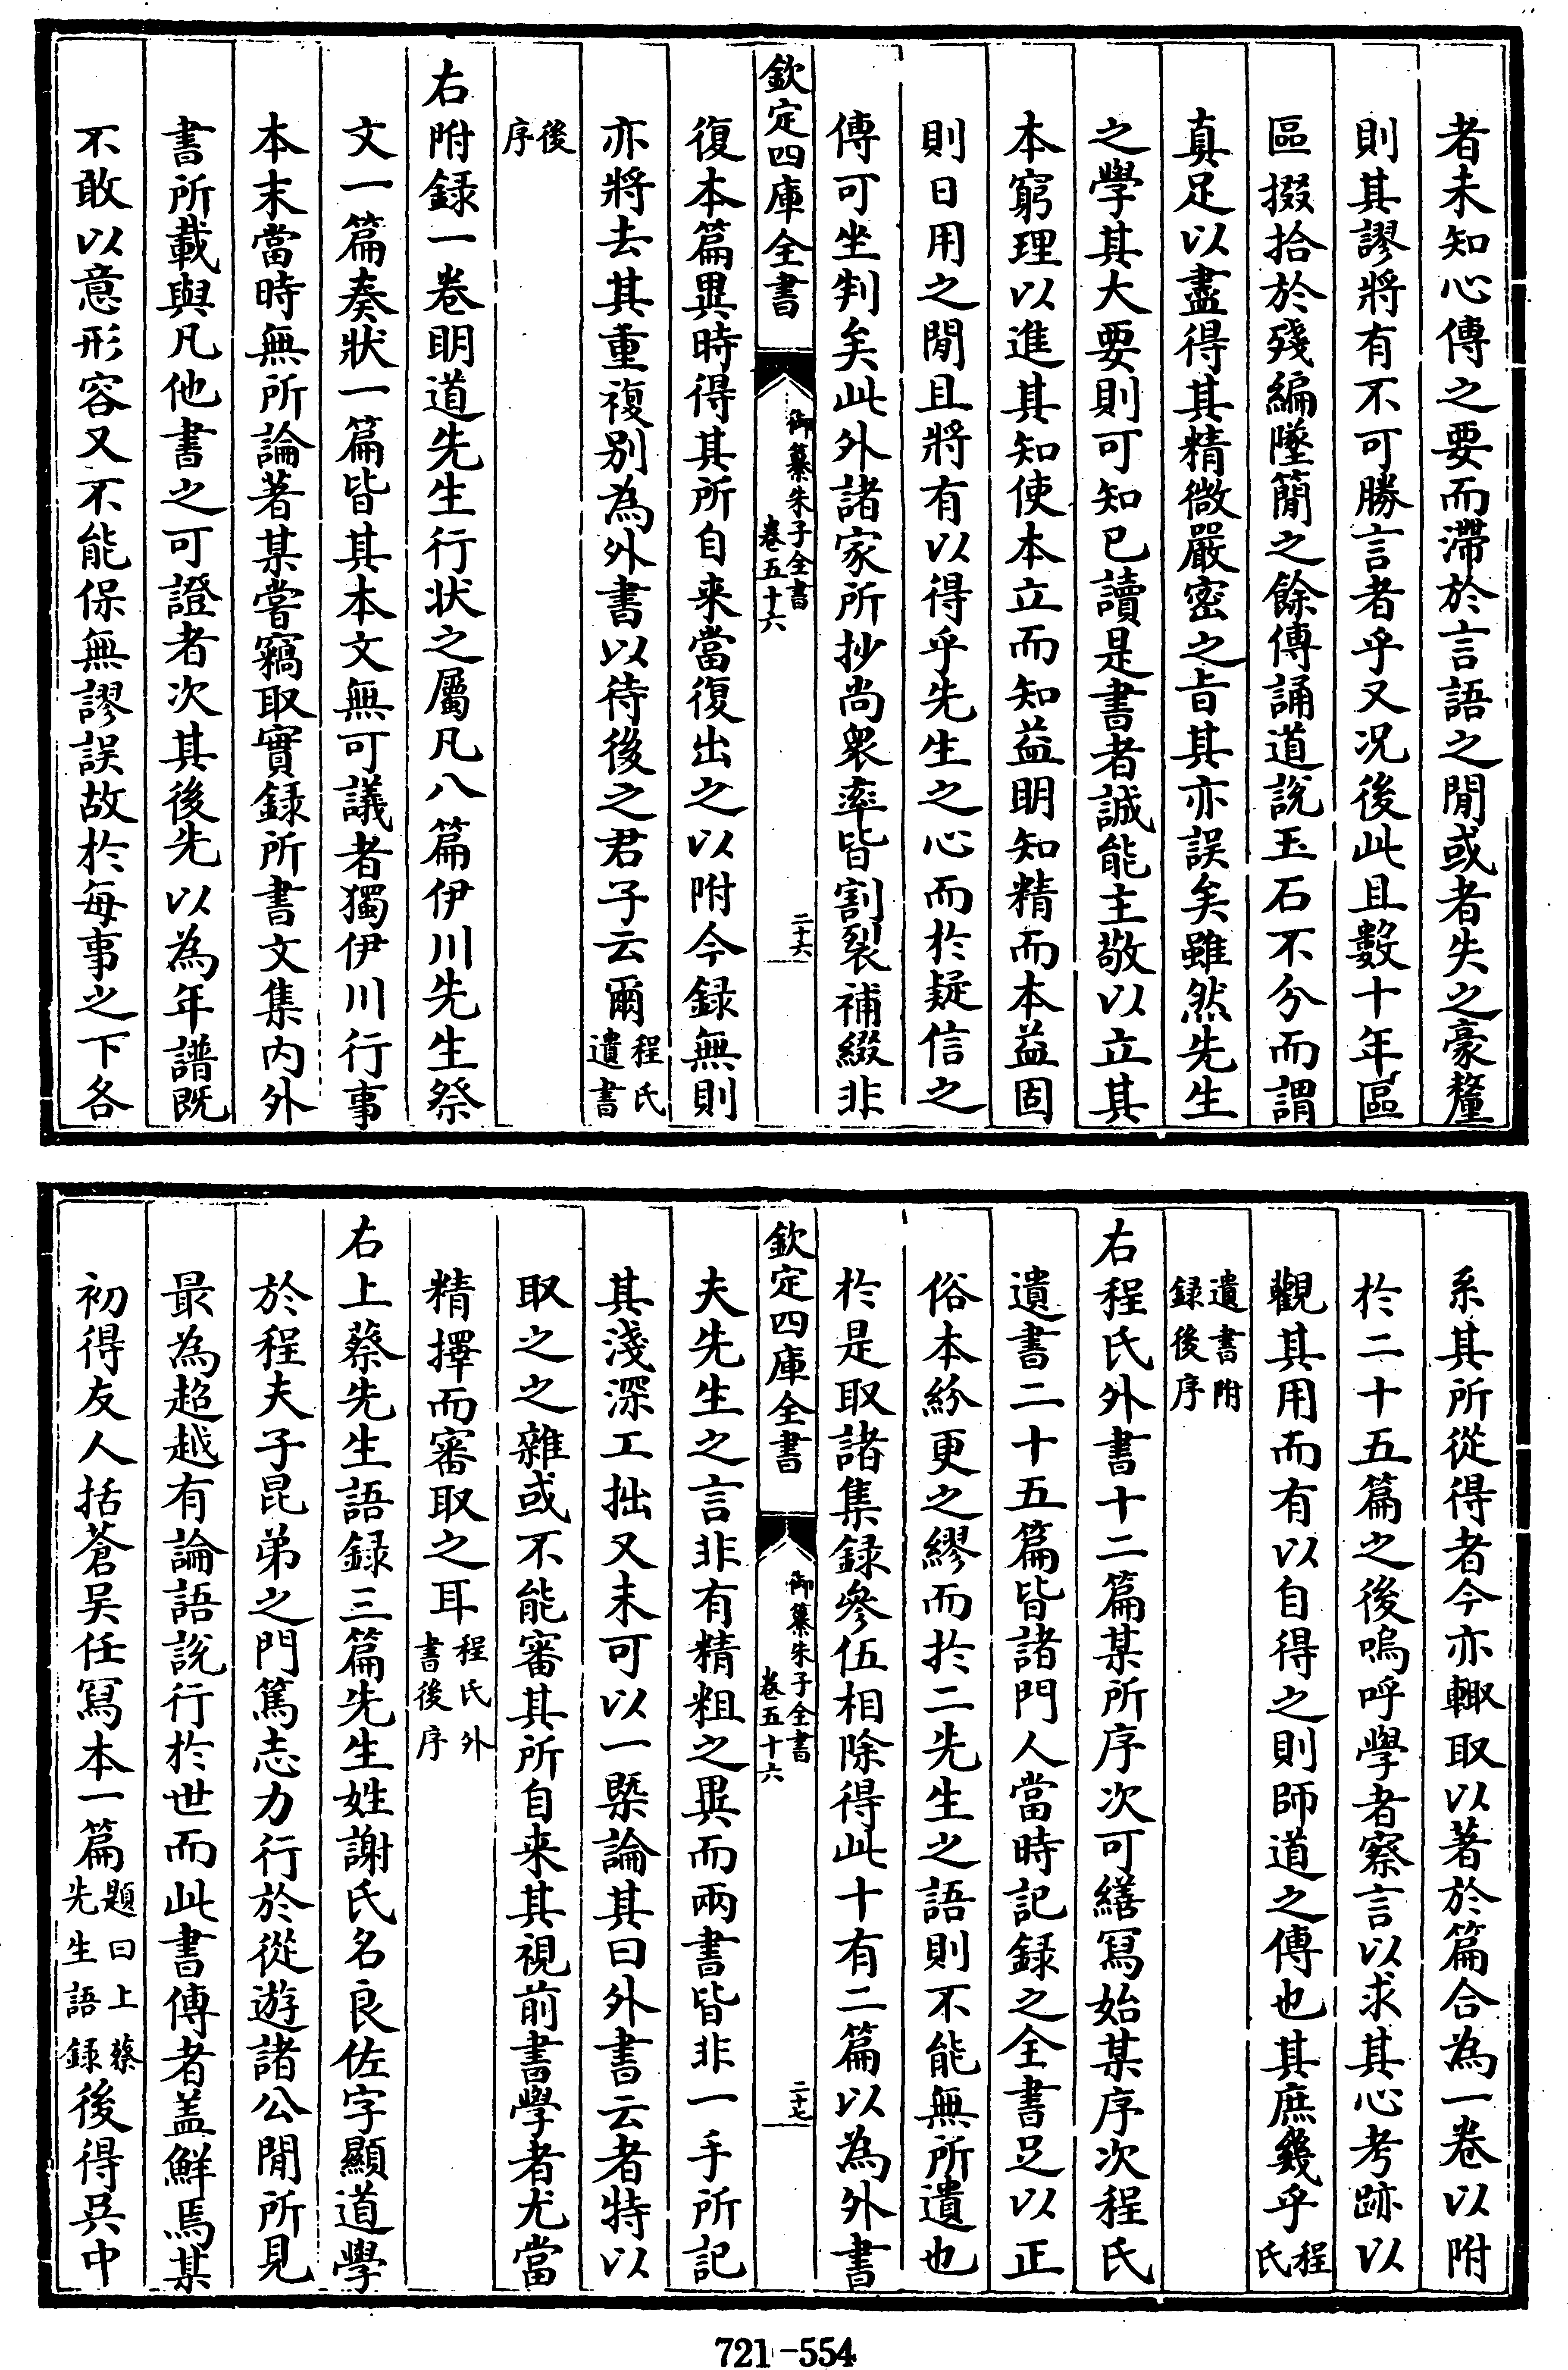 者未知心傳之要而滯於言語之閒或者失之豪釐
則其謬將有不可勝言者乎又况後此且數十年區
區掇拾於殘編墜簡之餘傳誦道說玉石不分而謂
真足以盡得其精微嚴密之旨其亦誤矣雖然先生
之學其大要則可知已讀是書者誠能主敬以立其
本窮理以進其知使本立而知益明知精而本益固
則日用之閒且將有以得乎先生之心而於疑信之
傳可坐判矣此外諸家所抄尚衆率皆割裂補綴非
欽定四庫全書
御纂朱子全書
卷五十六
二十六
復本篇異時得其所自来當復出之以附今録無則
亦將去其重複别為外書以待後之君子云爾程氏遺書
後序
右附録一卷明道先生行状之屬凡八篇伊川先生祭
文一篇奏狀一篇皆其本文無可議者獨伊川行事
本末當時無所論著某嘗竊取實録所書文集内外
書所載與凡他書之可證者次其後先以為年譜既
不敢以意形容又不能保無謬誤故於每事之下各
系其所從得者今亦輙取以著於篇合為一卷以附
於二十五篇之後嗚呼學者察言以求其心考跡以
觀其用而有以自得之則師道之傳也其庶幾乎程氏
遺書附録後序
右程氏外書十二篇某所序次可繕冩始某序次程氏
遺書二十五篇皆諸門人當時記録之全書足以正
俗本紛更之繆而於二先生之語則不能無所遺也
於是取諸集録參伍相除得此十有二篇以為外書
欽定四庫全書
御纂朱子全書
卷五十六
二十七
夫先生之言非有精粗之異而兩書皆非一手所記
其淺深工拙又未可以一槩論其曰外書云者特以
取之之雜或不能審其所自来其視前書學者尤當
精擇而審取之耳程氏外書後序
右上蔡先生語録三篇先生姓謝氏名良佐字顯道學
於程夫子昆弟之門篤志力行於從遊諸公閒所見
最為超越有論語說行於世而此書傳者盖鮮焉某
初得友人括蒼吴任冩本一篇題曰上蔡先生語録後得吳中
721-554